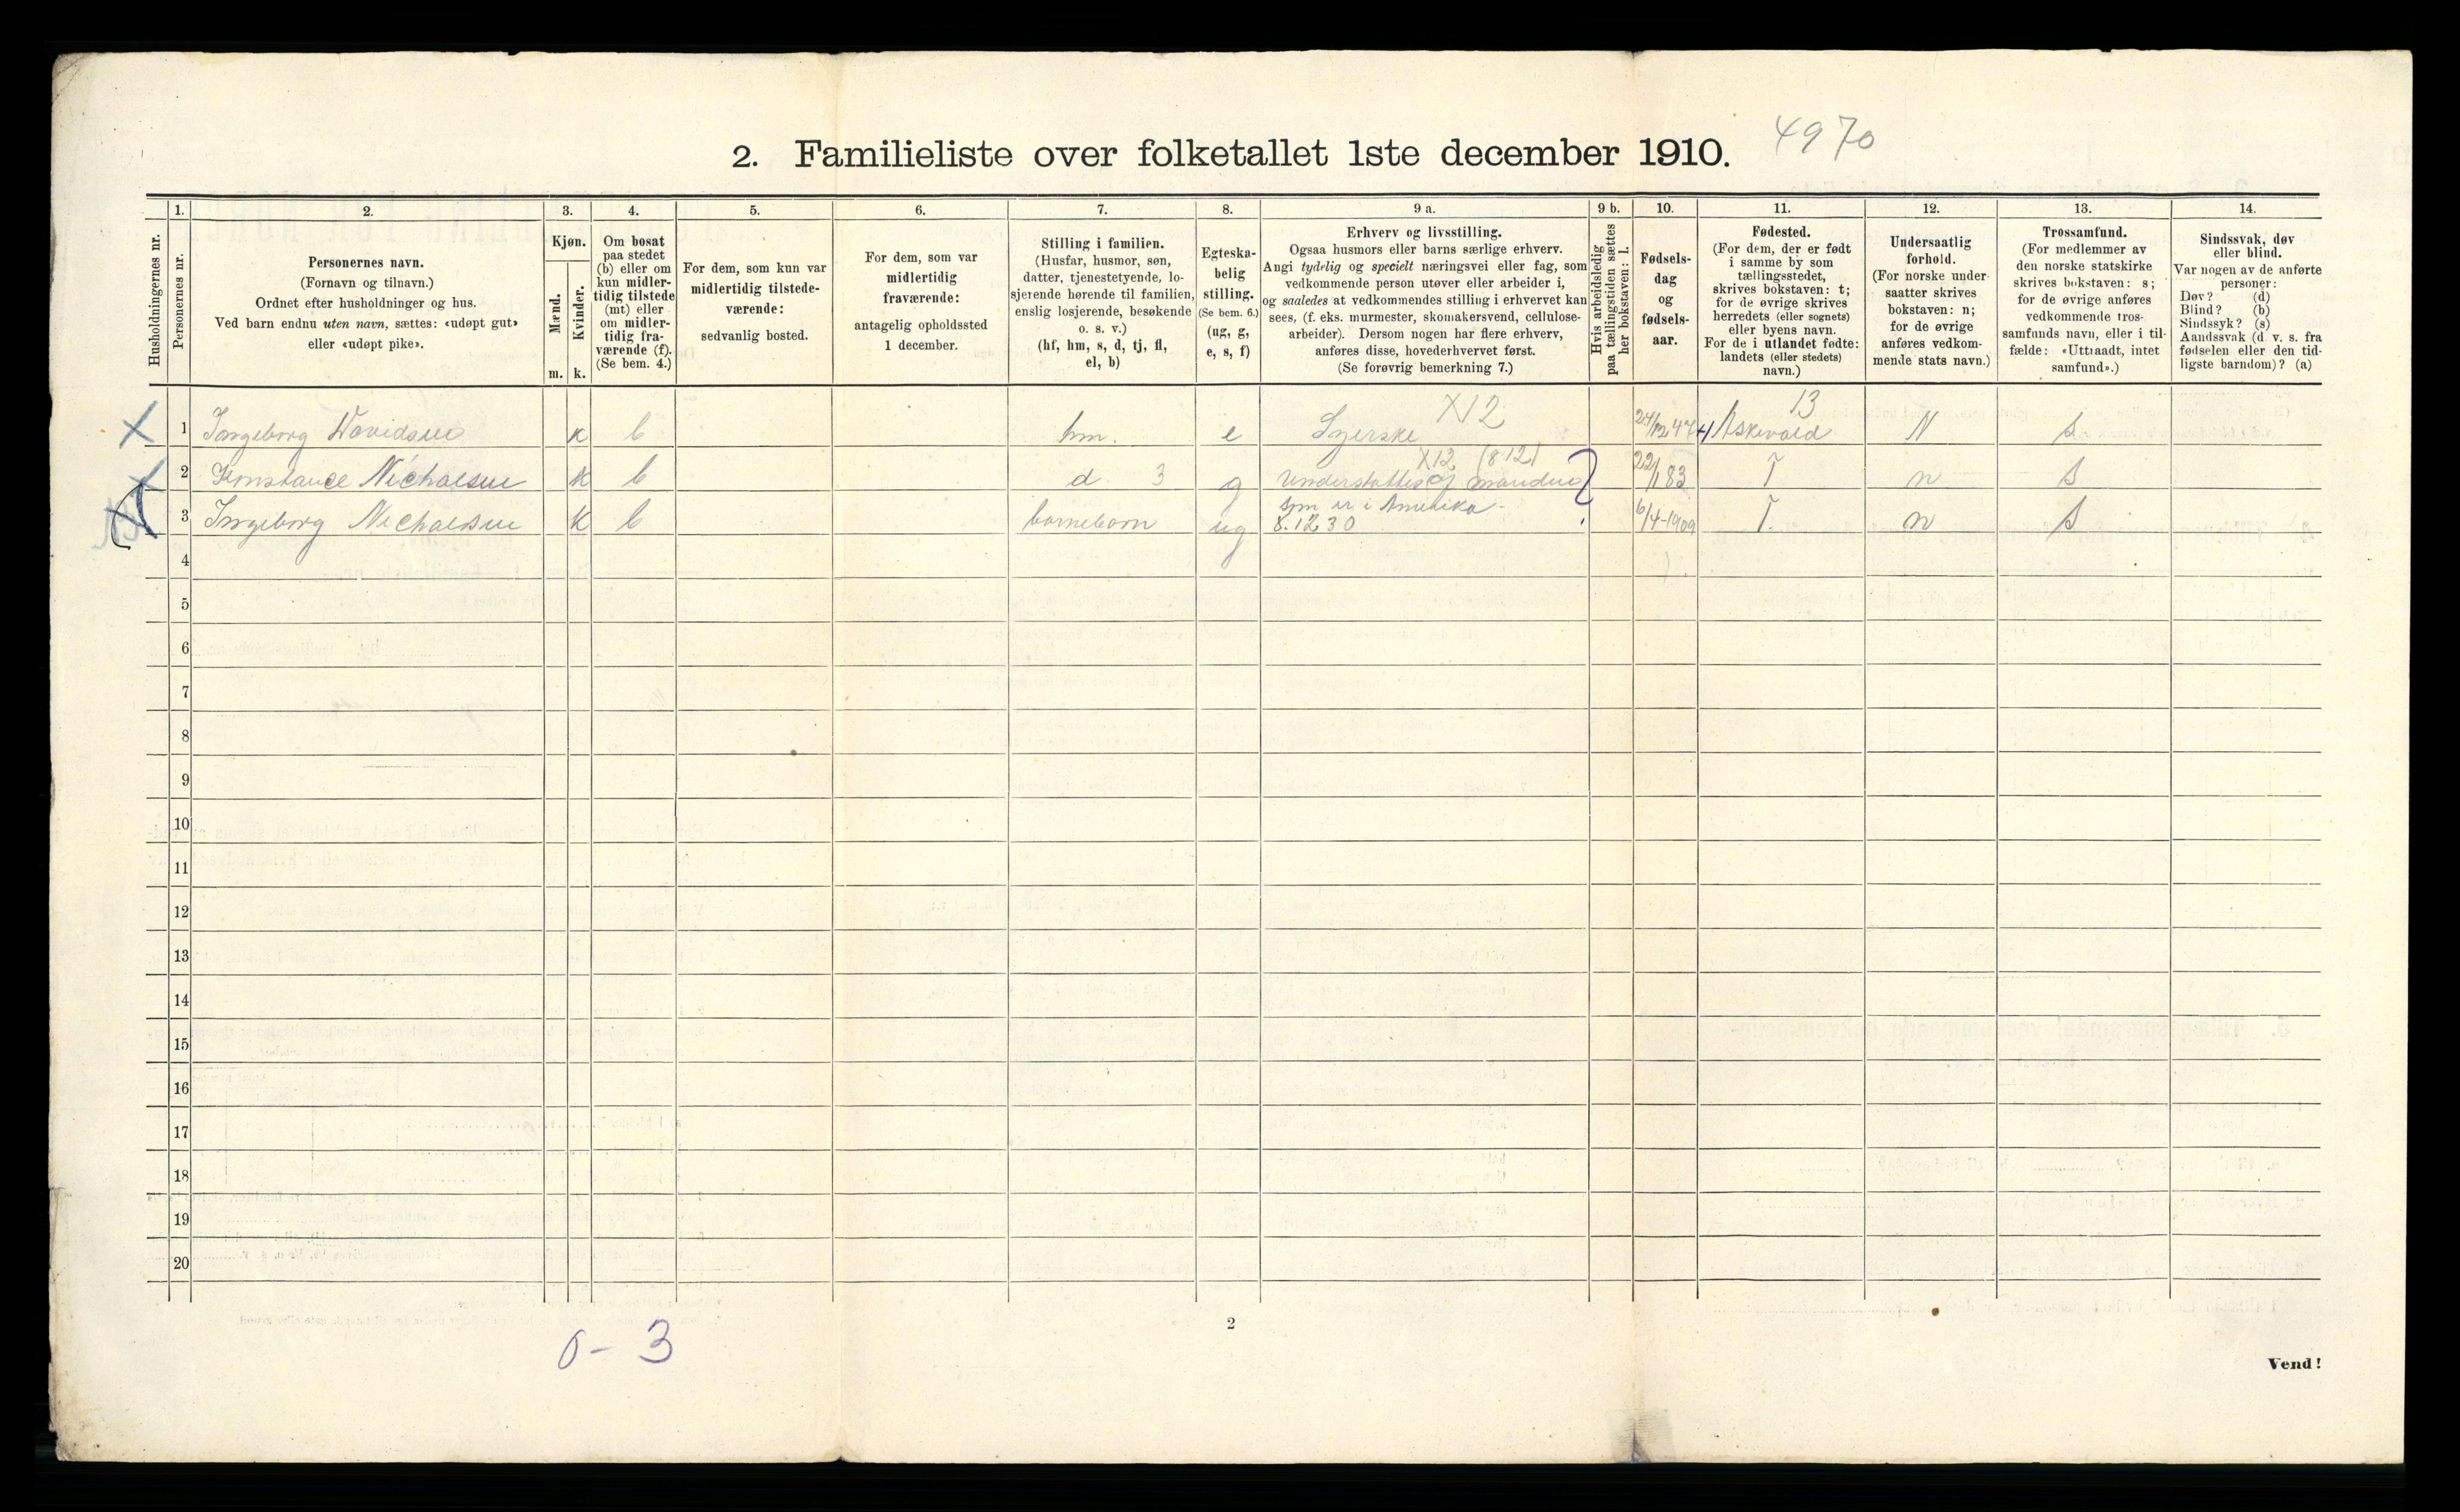 2. Familieliste over folketallet 1ste december 1910.
4970
Husholdningernes nr.
1.
Personernes nr.
2.
Personernes navn.
(Fornavn og tilnavn.)
Ordnet efter husholdninger og hus.
Ved barn endnu uten navn, sættes: «udøpt gut»
eller «udøpt pike».
3.
Kjøn.
Mænd.
Kvinder.
m. k.
4.
Om bosat
paa stedet
(b) eller om
kun midler-
tidig tilstede
(mt) eller
om midler-
tidig fra-
værende (f).
(Se bem. 4.)
5.
For dem, som kun var
midlertidig tilstede-
værende:
sedvanlig bosted.
6.
For dem, som var
midlertidig
fraværende:
antagelig opholdssted
1 december.
7.
Stilling i familien.
(Husfar, husmor, søn,
datter, tjenestetyende, lo-
sjerende hørende til familien,
enslig losjerende, besøkende
o. s. v.)
(hf, hm, s, d, tj, fl,
el, b)
8.
Egteska-
belig
stilling.
(Se bem. 6.)
(ug, g,
e, s, f)
9 a.
Erhverv og livsstilling.
Ogsaa husmors eller barns særlige erhverv.
Angi tydelig og specielt næringsvei eller fag, som
vedkommende person utøver eller arbeider i,
og saaledes at vedkommendes stilling i erhvervet kan
sees, (f. eks. murmester, skomakersvend, cellulose-
arbeider). Dersom nogen har flere erhverv,
anføres disse, hovederhvervet først.
(Se forøvrig bemerkning 7.)
9 b.
Hvis arbeidsledig
paa tællingstiden sættes
her bokstaven: l.
10.
Fødsels-
dag
og
fødsels-
aar.
11.
Fødested.
(For dem, der er født
i samme by som
tællingsstedet,
skrives bokstaven: t;
for de øvrige skrives
herredets (eller sognets)
eller byens navn.
For de i utlandet fødte:
landets (eller stedets)
navn.)
12.
Undersaatlig
forhold.
(For norske under-
saatter skrives
bokstaven: n;
for de øvrige
anføres vedkom-
mende stats navn.)
13.
Trossamfund.
(For medlemmer av
den norske statskirke
skrives bokstaven: s;
for de øvrige anføres
vedkommende tros-
samfunds navn, eller i til-
fælde: «Uttraadt, intet
samfund».)
14.
Sindssvak, døv
eller blind.
Var nogen av de anførte
personer:
Døv? (d)
Blind? (b)
Sindssyk? (s)
Aandssvak (d. v. s. fra
fødselen eller den tid-
ligste barndom)? (a)
X12 13
X 1 Ingeborg Davidsen k b hm. e Syerske 24/12 47 Askevold N S
X12 (812)
2 Konstance Nichaelsen k b d 3 g Understøttes af manden 22/1 83 T n S
som er i Amerika
3 Ingeborg Nichaelsen k b barnebarn ug 8.1230 6/4-1909 T. n S
4
5
6
7
8
9
10
11
12
13
14
15
16
17
18
19
20
0-3
2
Vend!